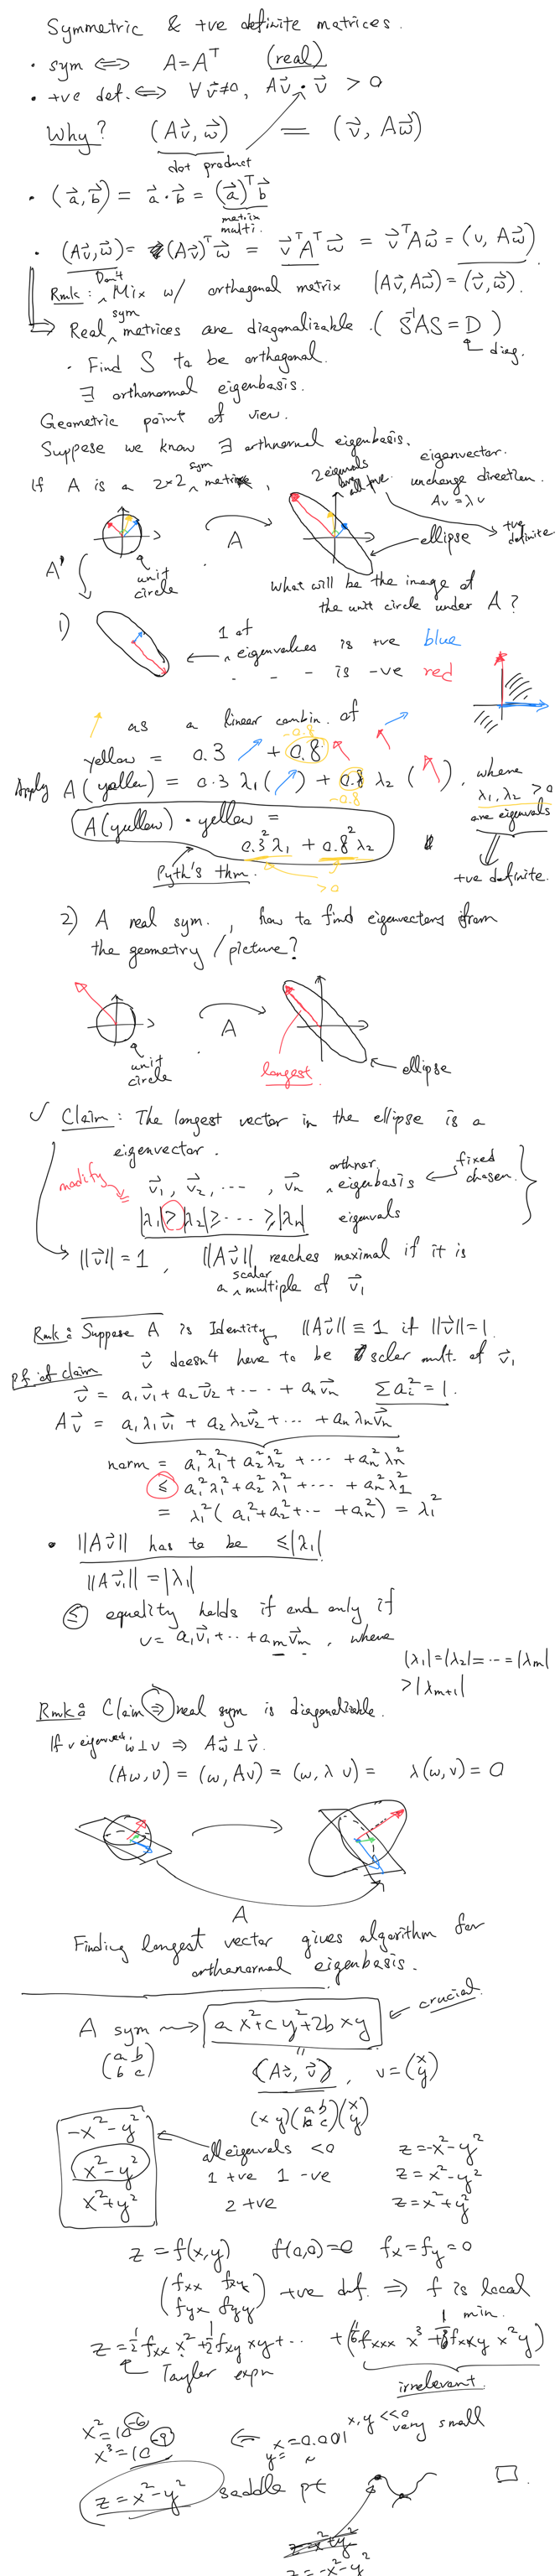 Symmetric & +ve definite matrices.
• sym ⟺ A = Aᵀ (real)
• +ve def. ⟺ ∀ v⃗≠0, Av⃗ • v⃗ > 0
Why? (Av⃗, w⃗) = (v⃗, Aw⃗)
dot product
• (a⃗, b⃗) = a⃗ · b⃗ = (a⃗)ᵀ b⃗
matrix
multi.
• (Av⃗, w⃗) = (Av⃗)ᵀ w⃗ = v⃗ᵀAᵀ w⃗ = v⃗ᵀAw⃗ = (v, Aw⃗)
Rmk: Don't Mix w/ orthogonal matrix (Av⃗, Aw⃗) = (v⃗, w⃗).
⟹ Real sym metrices are diagonalizable. (S⁻¹AS = D)
diag.
• Find S to be orthogonal.
∃ orthonormal eigenbasis.
Geometric point of view.
Suppose we know ∃ orthnormal eigenbasis.
If A is a 2×2 sym matrix,
2 eigenvals are all +ve.
eigenvector.
unchange direction.
Av = λv
+ve definite
A
ellipse
A'
unit circle
What will be the image of
the unit circle under A?
1)
1 of eigenvalues is +ve blue
- - - is -ve red
as a linear combin. of
-0.8
yellow = 0.3 + 0.8
Apply A(yellow) = 0.3 λ₁( ) + 0.8 λ₂ ( ), where
-0.8
λ₁, λ₂ > 0
are eigenvals
A(yellow) · yellow =
0.3²λ₁ + 0.8²λ₂
Pyth's thm.
>0
+ve definite.
2) A real sym., how to find eigenvectors from
the geometry / picture?
A
unit circle
longest
ellipse
✓ Claim: The longest vector in the ellipse is a
eigenvector.
modify
v⃗₁, v⃗₂, ..., v⃗n orthnor eigenbasis ← fixed chosen.
|λ₁| ≥ |λ₂| ≥ ... ≥ |λn| eigenvals
||v⃗|| = 1, ||Av⃗|| reaches maximal if it is
a scalar multiple of v⃗₁
Rmk: Suppose A is Identity, ||Av⃗|| ≡ 1 if ||v⃗|| = 1.
v⃗ doesn't have to be scaler mult. of v⃗₁
Pf of claim
v⃗ = a₁v⃗₁ + a₂v⃗₂ + ... + anv⃗n Σaᵢ² = 1.
Av⃗ = a₁λ₁v⃗₁ + a₂λ₂v⃗₂ + ... + anλnv⃗n
norm = a₁²λ₁² + a₂²λ₂² + ... + an²λn²
≤ a₁²λ₁² + a₂²λ₁² + ... + an²λ₁²
= λ₁²(a₁² + a₂² + ... + an²) = λ₁²
• ||Av⃗|| has to be ≤ |λ₁|
||Av⃗₁|| = |λ₁|
≤ equality holds if end only if
v = a₁v⃗₁ + ... + amv⃗m, where
|λ₁| = |λ₂| = ... = |λm|
> |λm+1|
Rmk: Claim ⟹ real sym is diagonalizable.
If v eigenvect. w ⊥ v ⟹ Aw⃗ ⊥ v⃗.
(Aw, v) = (w, Av) = (w, λv) = λ(w, v) = 0
A
Finding longest vector gives algorithm for
orthonormal eigenbasis.
A sym ⇝ ax² + cy² + 2bxy ← crucial.
(a b
b c)
(Av⃗, v⃗), v = (x
y)
(x y)(a b
b c)(x
y)
-x² - y² all eigenvals < 0 z = -x² - y²
x² - y² 1 +ve 1 -ve z = x² - y²
x² + y² 2 +ve z = x² + y²
z = f(x,y) f(0,0) = 0 fx = fy = 0
(fxx fxy
fyx fyy) +ve def. ⟹ f is local
min.
z = ½ fxx x² + ½ fxy xy + ... + (⅙ fxxx x³ + fxxy x²y)
Tayler expn
irrelevant.
x² = 10⁻⁶
x³ = 10⁻⁹
⇐ x = 0.001
y = ~
x, y << 0
very small
z = x² - y² saddle pt
□.
z = x² + y²
z = -x² - y²